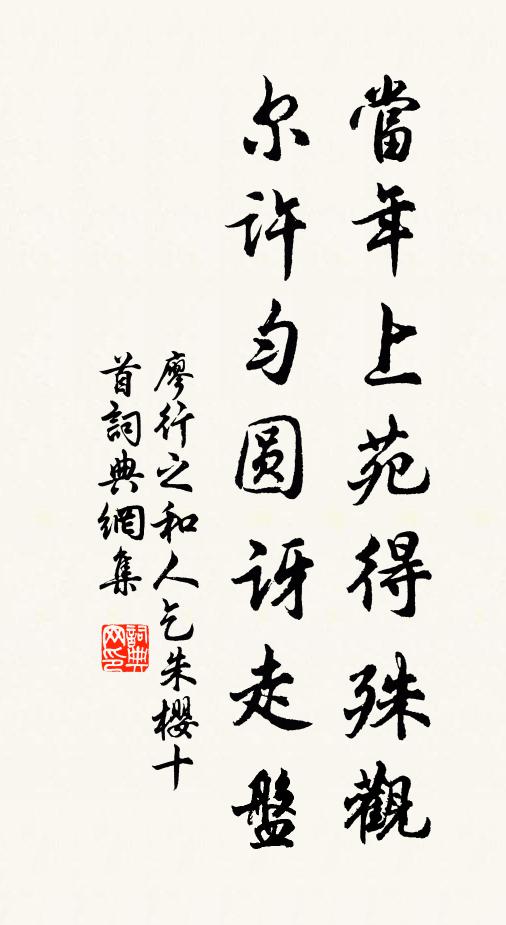 當年上苑得殊觀
尔許勻圆訝走盤
廖行之和人乞朱櫻十
首詞典網集
詞典網印